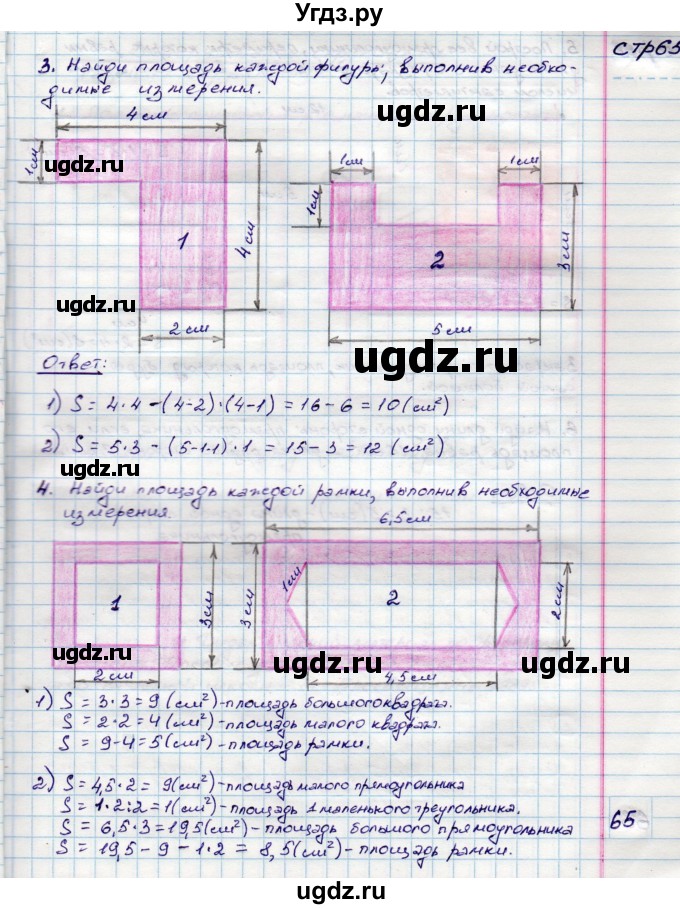 Угдз.ру
стр65
3. Найди площадь каждой фигуры, выполнив необхо-
димые измерения.
4 см
1 см
ugdz.ru
1
4 см
ugdz.ru
2 см
1 см
1 см
1 см
ugdz.ru
2
3 см
5 см
ugdz.ru
Ответ:
1) S = 4·4-(4-2)·(4-1) = 16-6 = 10(см²)
ugdz.ru
2) S = 5·3 - (5-1-1)·1 = 15-3 = 12 (см²)
4. Найди площадь каждой рамки, выполнив необходимые
измерения.
ugdz.ru
1
3 см
2 см
6,5 см
3 см
1 см
2
2 см
4,5 см
ugdz.ru
1) S = 3·3 = 9 (см²)-площадь большого квадрата.
S = 2·2 = 4(см²)-площадь малого квадрата.
S = 9-4 = 5(см²)-площадь рамки.
ugdz.ru
2) S = 4,5·2 = 9(см²)-площадь малого прямоугольника
S = 1·2:2 = 1(см²)-площадь 1 маленького треугольника.
S = 6,5·3 = 19,5(см²)-площадь большого прямоугольника
S = 19,5 - 9 - 1·2 = 8,5(см²)-площадь рамки.
65
ugdz.ru
ugdz.ru